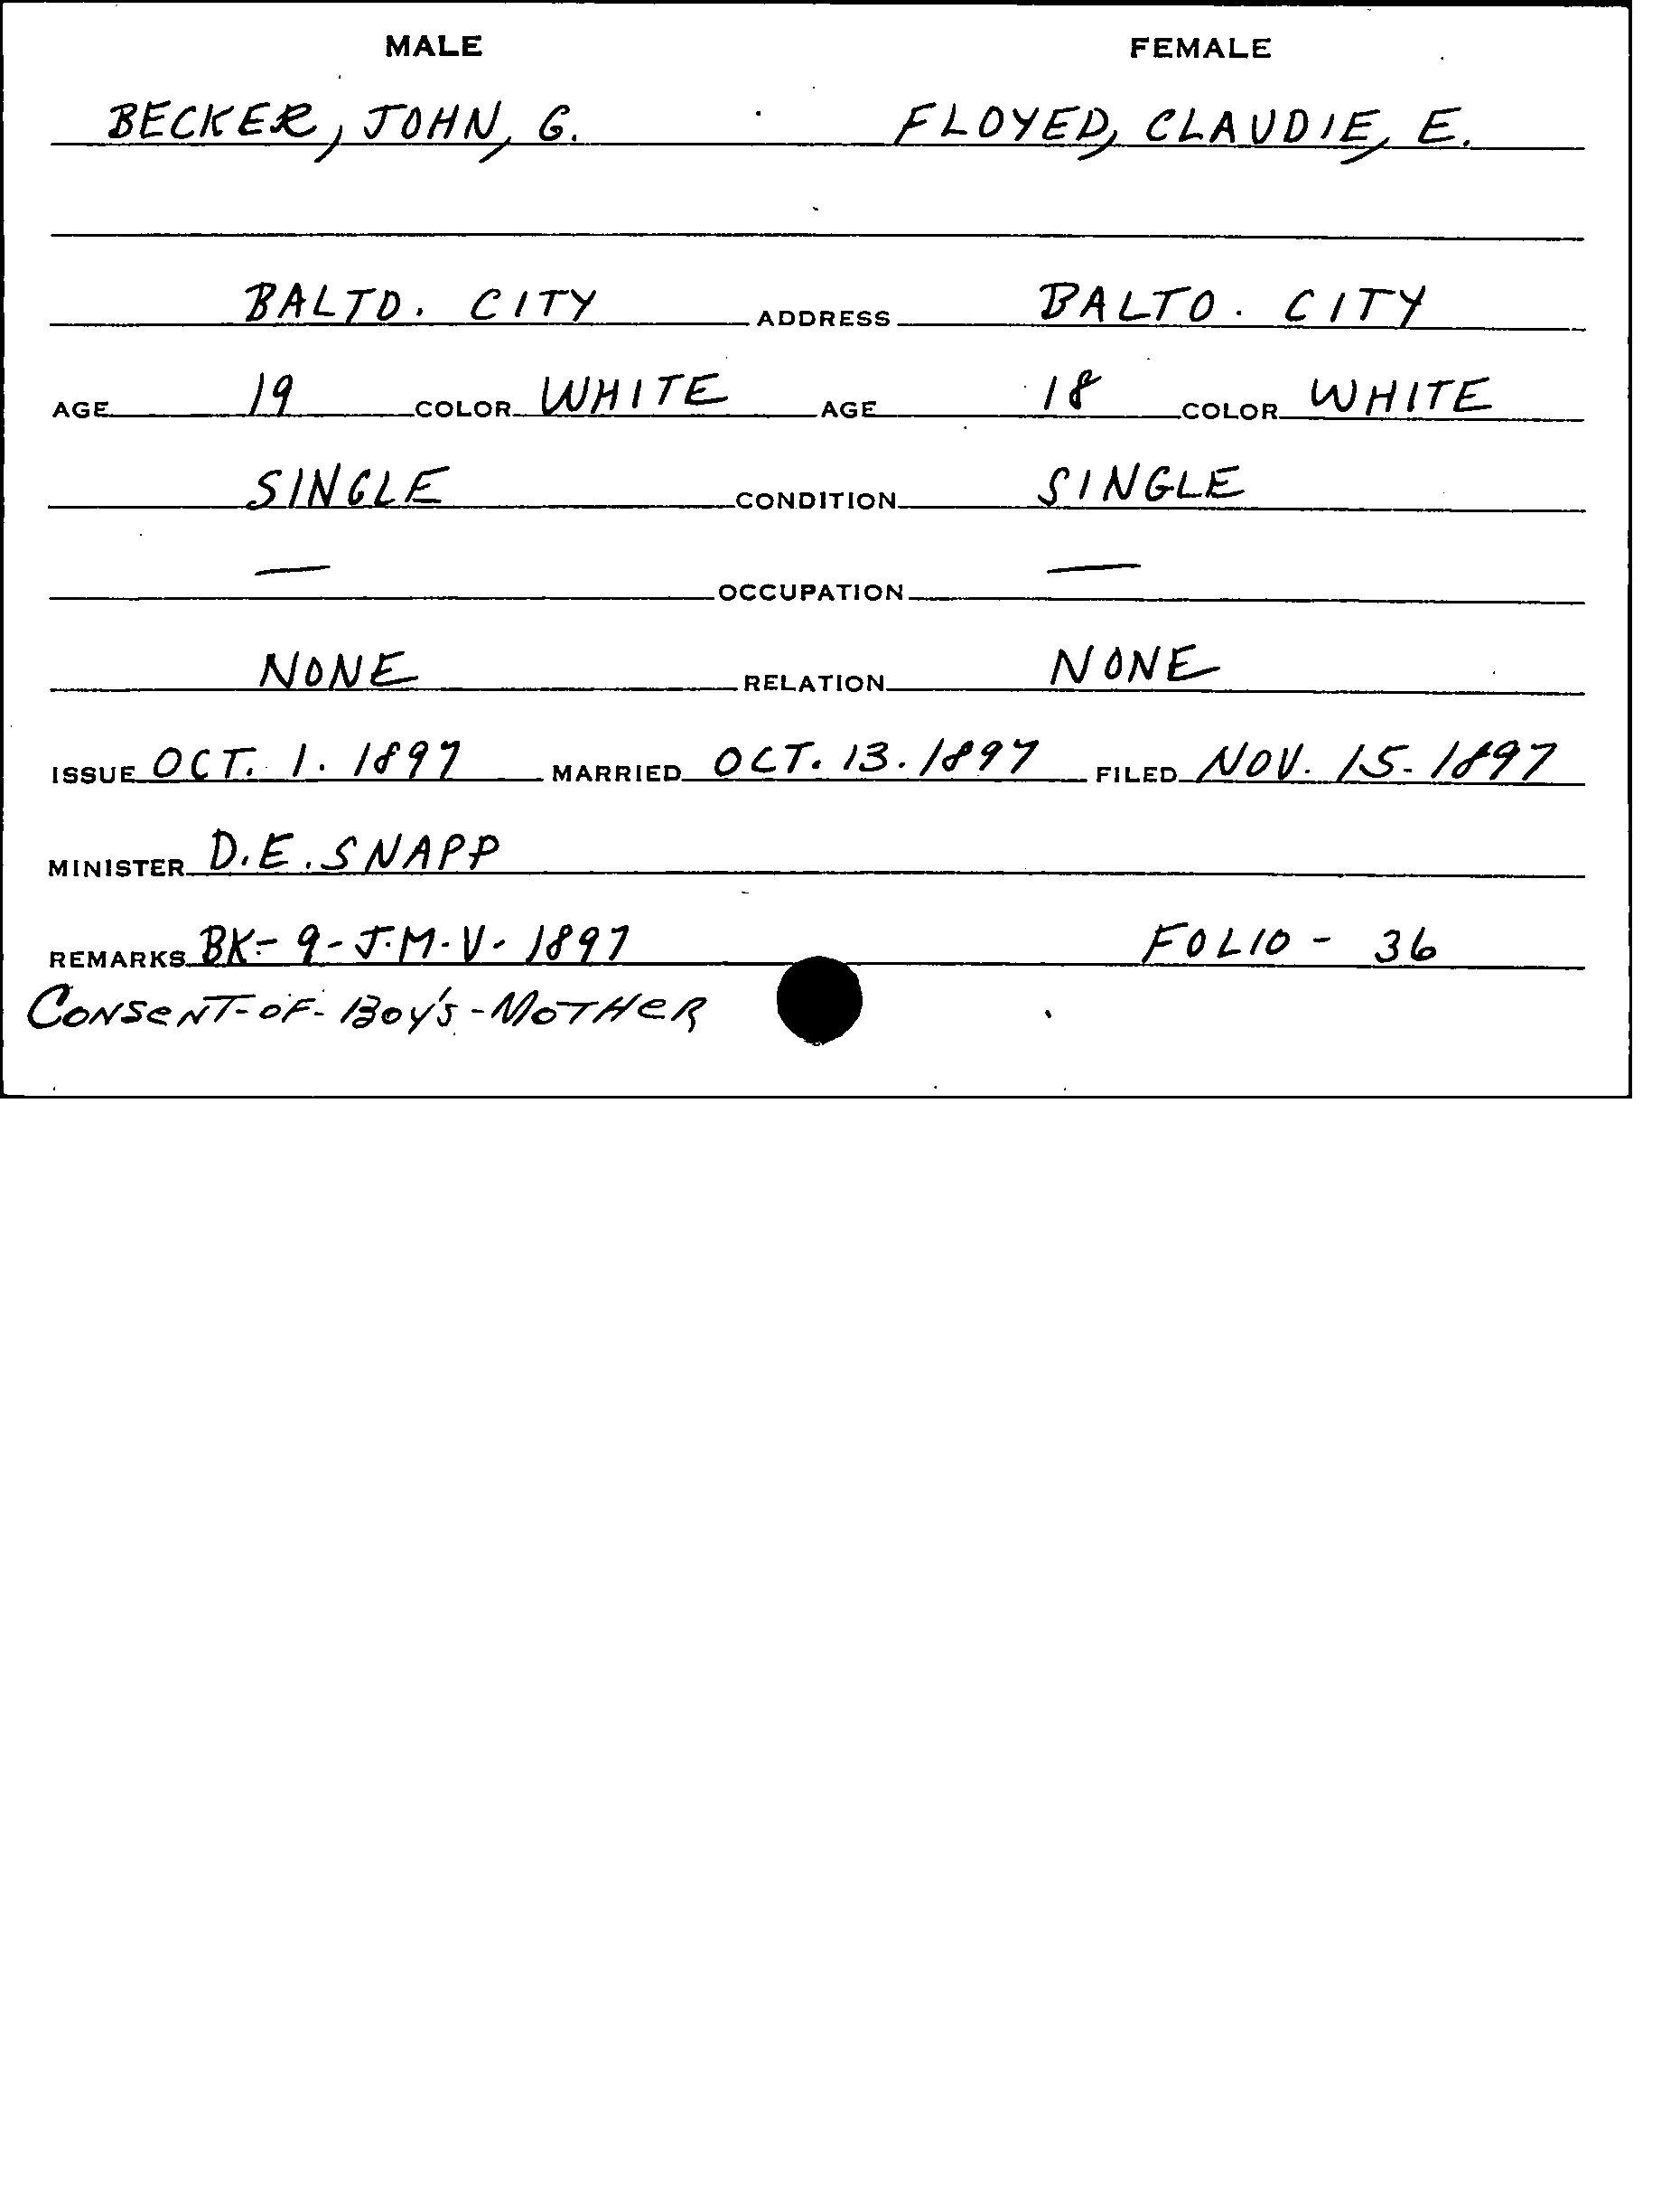 MALE FEMALE
BECKER, JOHN, G. FLOYED, CLAUDIE, E.
BALTO. CITY ADDRESS BALTO. CITY
AGE 19 COLOR WHITE AGE 18 COLOR WHITE
SINGLE CONDITION SINGLE
— OCCUPATION —
NONE RELATION NONE
ISSUE OCT. 1. 1897 MARRIED OCT. 13. 1897 FILED NOV. 15. 1897
MINISTER D.E. SNAPP
REMARKS BK-9-J.M.V. 1897 FOLIO - 36
CONSENT-OF-BOY'S-MOTHER